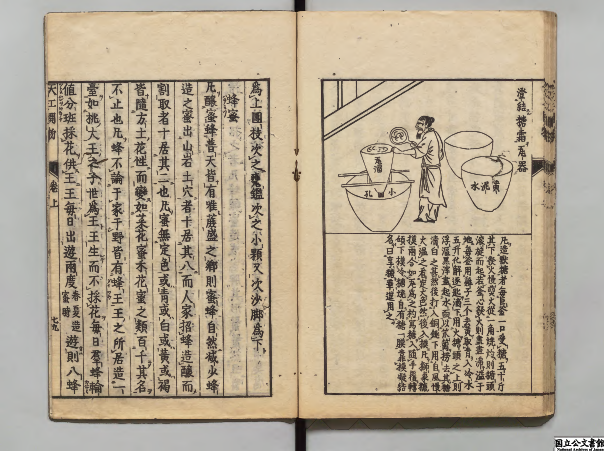 澄結糖霜瓦器
瓦溜
小孔
黄泥水
凡造獸糖者每巨釜一口受糖五十斤
其下發火慢煎火從一角燒灼則糖頭
滾旋而起若釜心發火則盡盡沸溢于
地每釜用雞子三個去黃取青入冷水
五升化解逐匙滴下用火糖頭之上則
浮漚黑滓盡起水面以笊籬撈去其糖
清白之甚然後打入銅銚下用自風慢
火溫之看定火色然後入模凡獅象糖
模兩合如瓦爲之杓寫糖入隨手覆轉
傾下模冷糖燒自有糖一膜靠模凝結
名曰享糖華筵用之
爲上團枝次之甕鑑次之小顆又次沙脚爲下
蜂蜜
凡釀蜜蜂普天皆有唯蔗盛之鄉則蜜蜂自然減少蜂
造之蜜出山岩土穴者十居其八而人家招蜂造釀而
割取者十居其二也凡蜜無定色或青或白或黃或褐
皆隨方土花性而變如菜花蜜禾花蜜之類百千其名
不止也凡蜂不論于家于野皆有蜂王王之所居造一
臺如桃大王之子世爲王王生而不採花每日羣蜂輪
値分班採花供王王每日出遊兩度春夏造蜜時遊則八蜂
天工開物 卷上
国立公文書館
National Archives of Japan